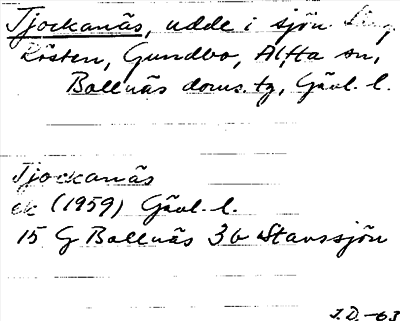 Tjockanäs, udde i sjön
Rösten, Gundbo, Alfta sn,
Bollnäs doms. tg, Gävl. l.
Tjockanäs
ek (1959) Gävl. l.
15 G Bollnäs 3b Stavssjön
J.D. -63